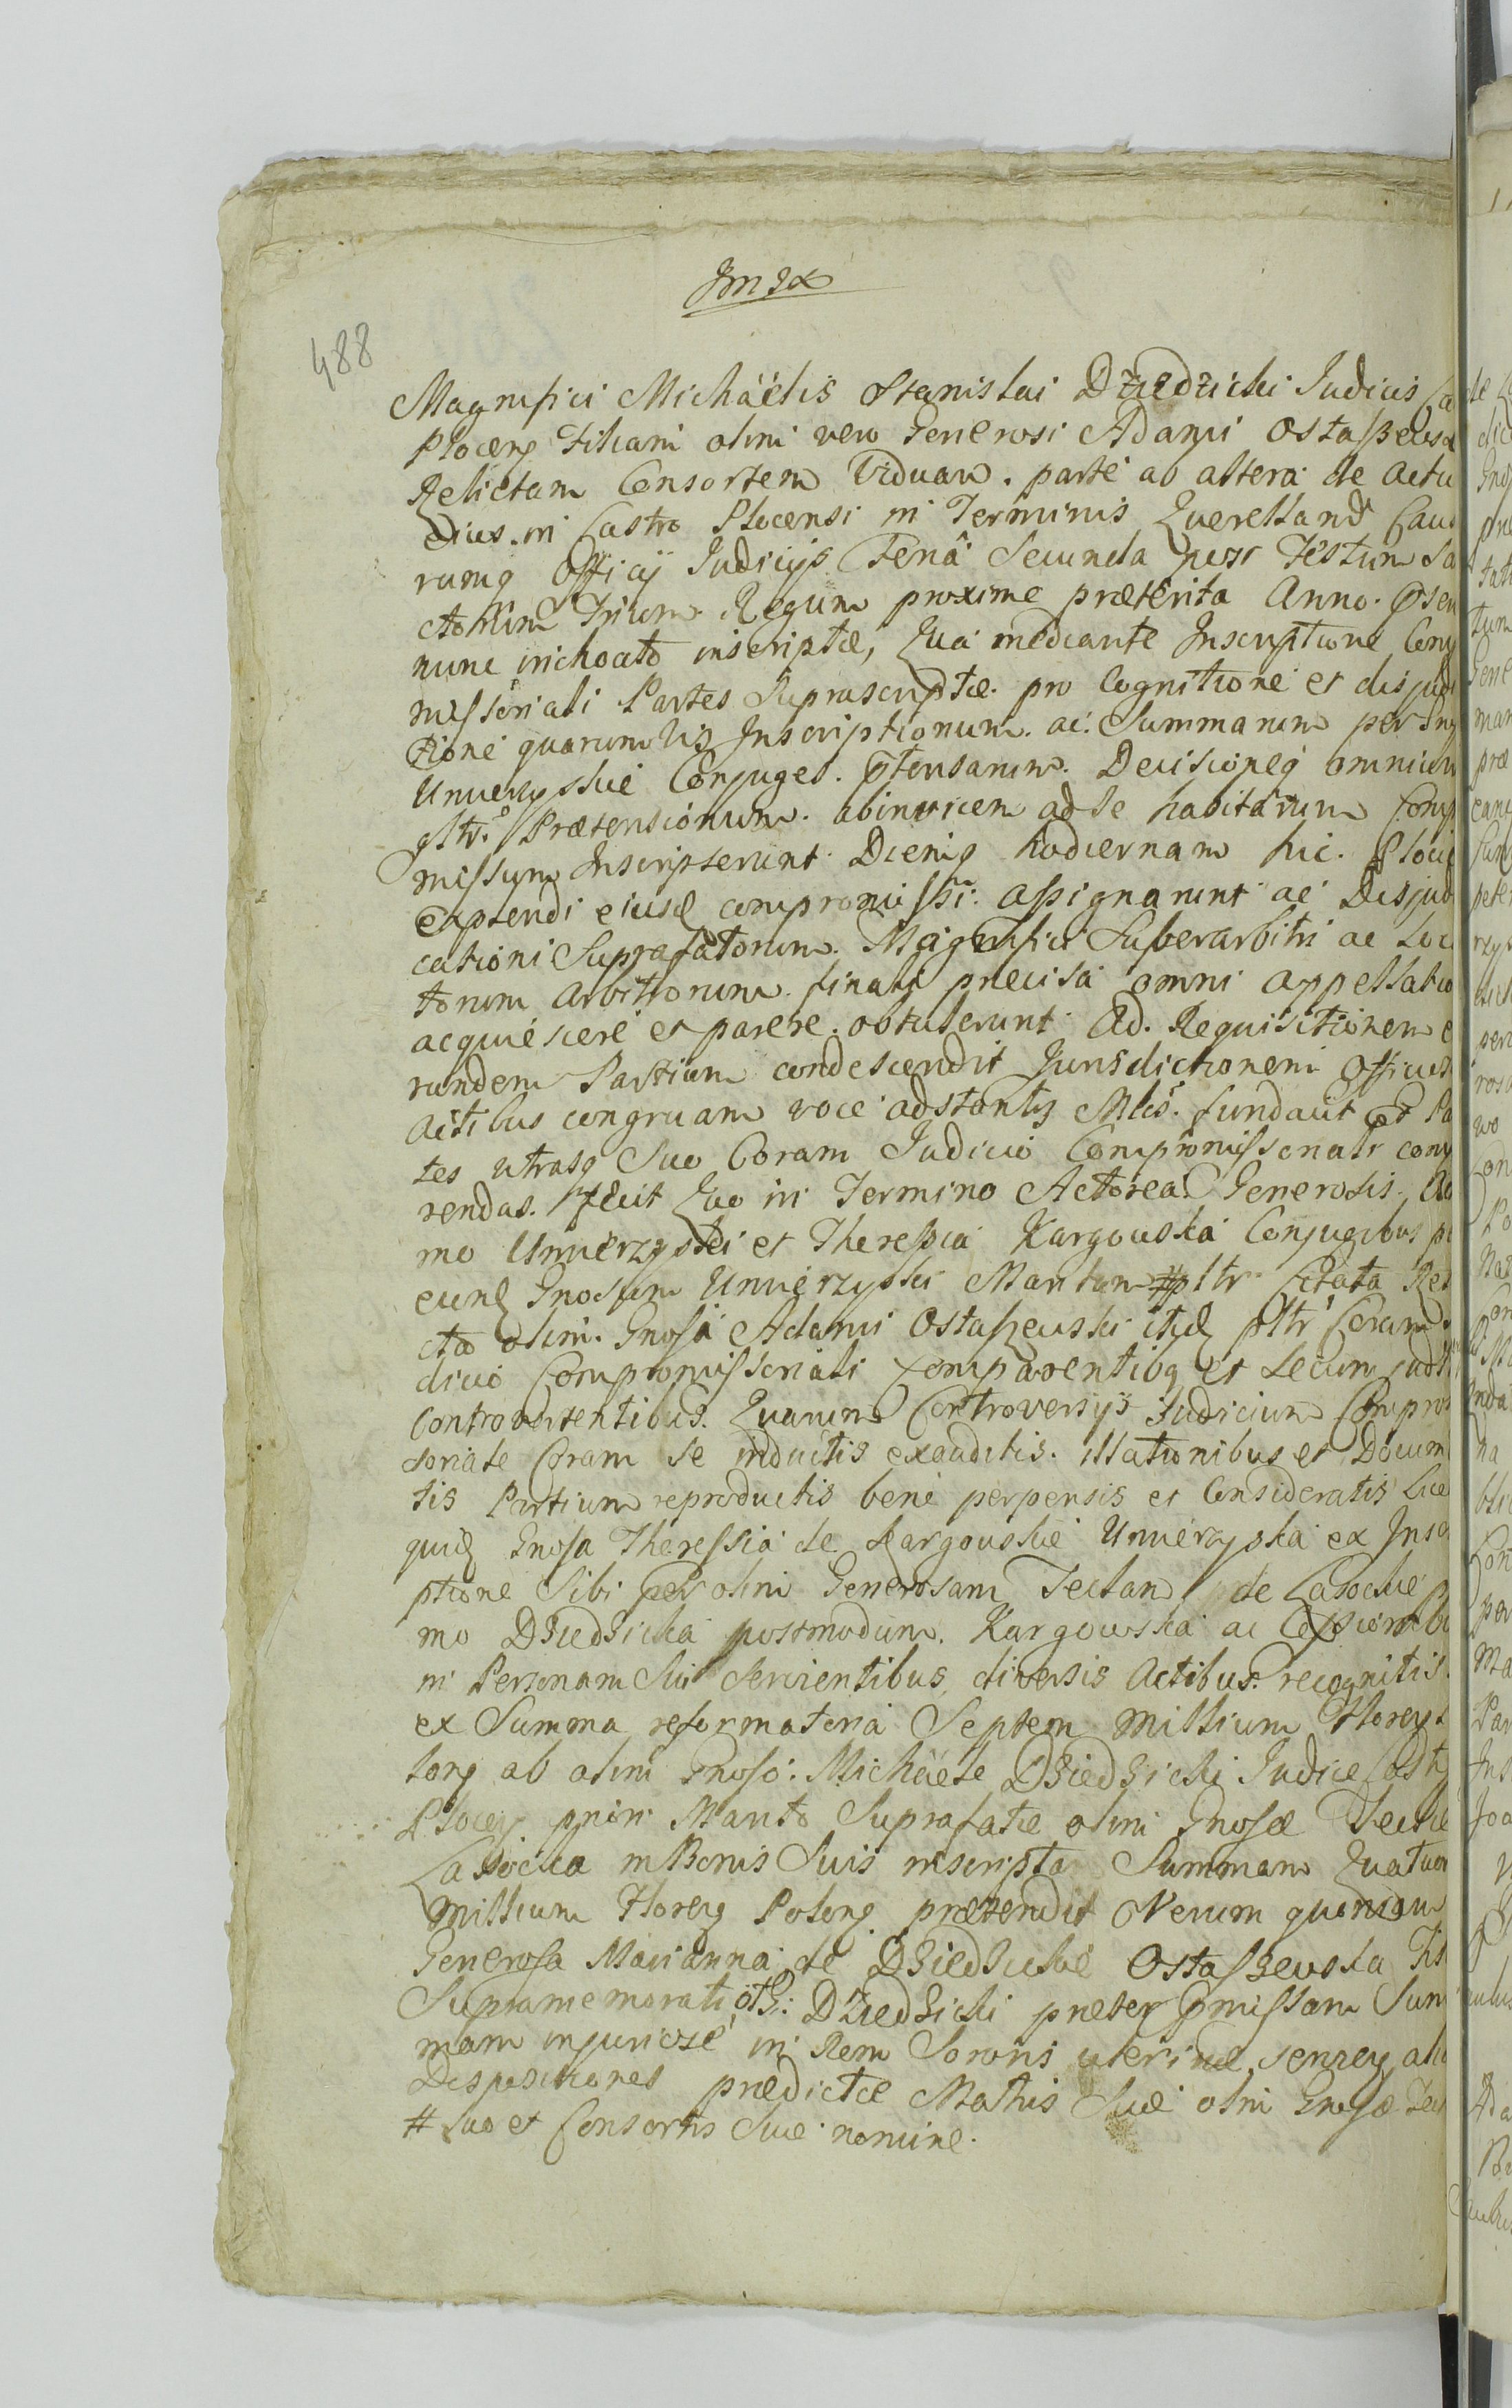 488
Magnifici Michäelis Stanislai Dziedzicki Judicis Ca
Plocen Filiam olim vero Generosi Adami Ostaszewsk
Relictam Consortem Viduam. parte ab altera de actu
eius. in Castro Plocensi in Terminis Querelland Caus
rumq Officÿ Judicÿs Feria Secunda post Festum Sa
ctorum Trium Regum proxime præterita Anno. Psen
nunc inchoato inscriptæ, Qua mediante Inscriptione Com
missoriali Partes Suprascriptæ. pro Cognitione et disjudi
tione quarumvis Inscriptionum. ac. Summarum per Gn
Unierzyskie Conjuges. Ptensarum. Decisioneq omnium
Pltr. Prætensionum. abinvicem ad se habitarum Comp
missum Inscripserunt Diemq hodiernam hic. Ploci
exptendi eiusd compromissi. assignarunt ac Disjud
cationi Suprafatorum. Magnifici Superarbitri ac Loca
torum Arbitrorum. finali precisa omni appellatio
acquiescere et parere. obtulerunt Ad. Requisitionem e
rundem Partium condescendit Jurisdictionem Officios
actibus congruam voce adstantis Mlis. fundavit et Pa
tes utrasq Suo Coram Judicio Compromissoriali comp
rendas. fecit Quo in Termino Actorea Generosis. Ad
mo Unierzyski et Theressia Kargowska Conjugibus p
eund Gnosum Unierzyski Maritum # pltr Citata Rel
cta olim. Gnosi Adami Ostaszewski itid pltr Coram
dicio Compromissoriali comparentibq et Secum judi
Controvertentibus. Quarum Controversÿs Judicium Compro
soriale Coram se inductis exauditis. illationibus et Docum
tis Partium reproductis bene perpensis et Consideratis Lice
quid Gnosa Theressia de Kargowskie Unierzyska ex Insc
ptione Sibi per olim Generosam Teclam de Lasockie
mo Dziedzicka postmodum. Kargowska ac Cessionib
in Personam Sui Servientibus, diversis Actibus. recognitis.
ex Summa reformatoria Septem Millium Floren
long ab olim Gnoso. Michäele Dziedzicki Judice Castr
Plocen priori Marito Suprafatæ olim Gnosæ Tecle
Lasocka in Bonis Suis inscripta Summam Quatuor
Millium Floren Polong prætendit Verum quoniam
Generosa Marianna de Dziedzickie Ostaszewska Fil
Supramemorati Dziedzicki præter Pmissam Sum
mam injuriose in Rem Sororis uterinæ
Dispositiones prædictæ Matris Suæ olim Gnosæ Tec
# suo et Consortis Suæ nomine.